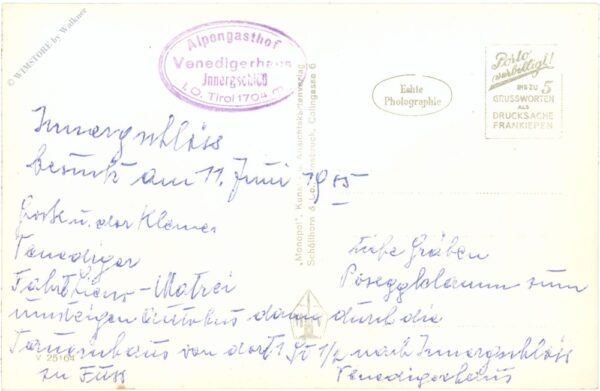 © WIMSTORE by Walkner
Alpengasthof
Venedigerhaus
Innergschlöß
I.O. Tirol 1704 m
Echte
Photographie
Porto
verbilligt!
BIS ZU 5
GRUSSWORTEN
ALS
DRUCKSACHE
FRANKIEREN
"Monopol", Kunst- u. Ansichtskartenverlag
Schöllhorn & Co., Innsbruck, Colingasse 6
Innergschlöss
besucht am 11. Juni 19
u. der Kleine
Venediger
Fahrt Lienz - Matrei
umsteigen Autobus dann durch die
Gräben
zum
Tauernhaus von dort 1 St 1/2 nach Innergschlöss
zu Fuss
Venedigerhaus
V 25164